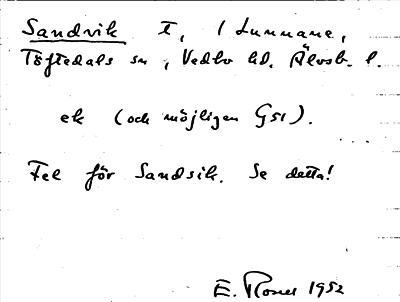 Sandvik T, 1 Lunnane,
Töftedals sn, Vedbo hd. Älvsb. l.
ek (och möjligen Gs1).
Fel för Sandsik. Se detta!
E. Rosell 1952